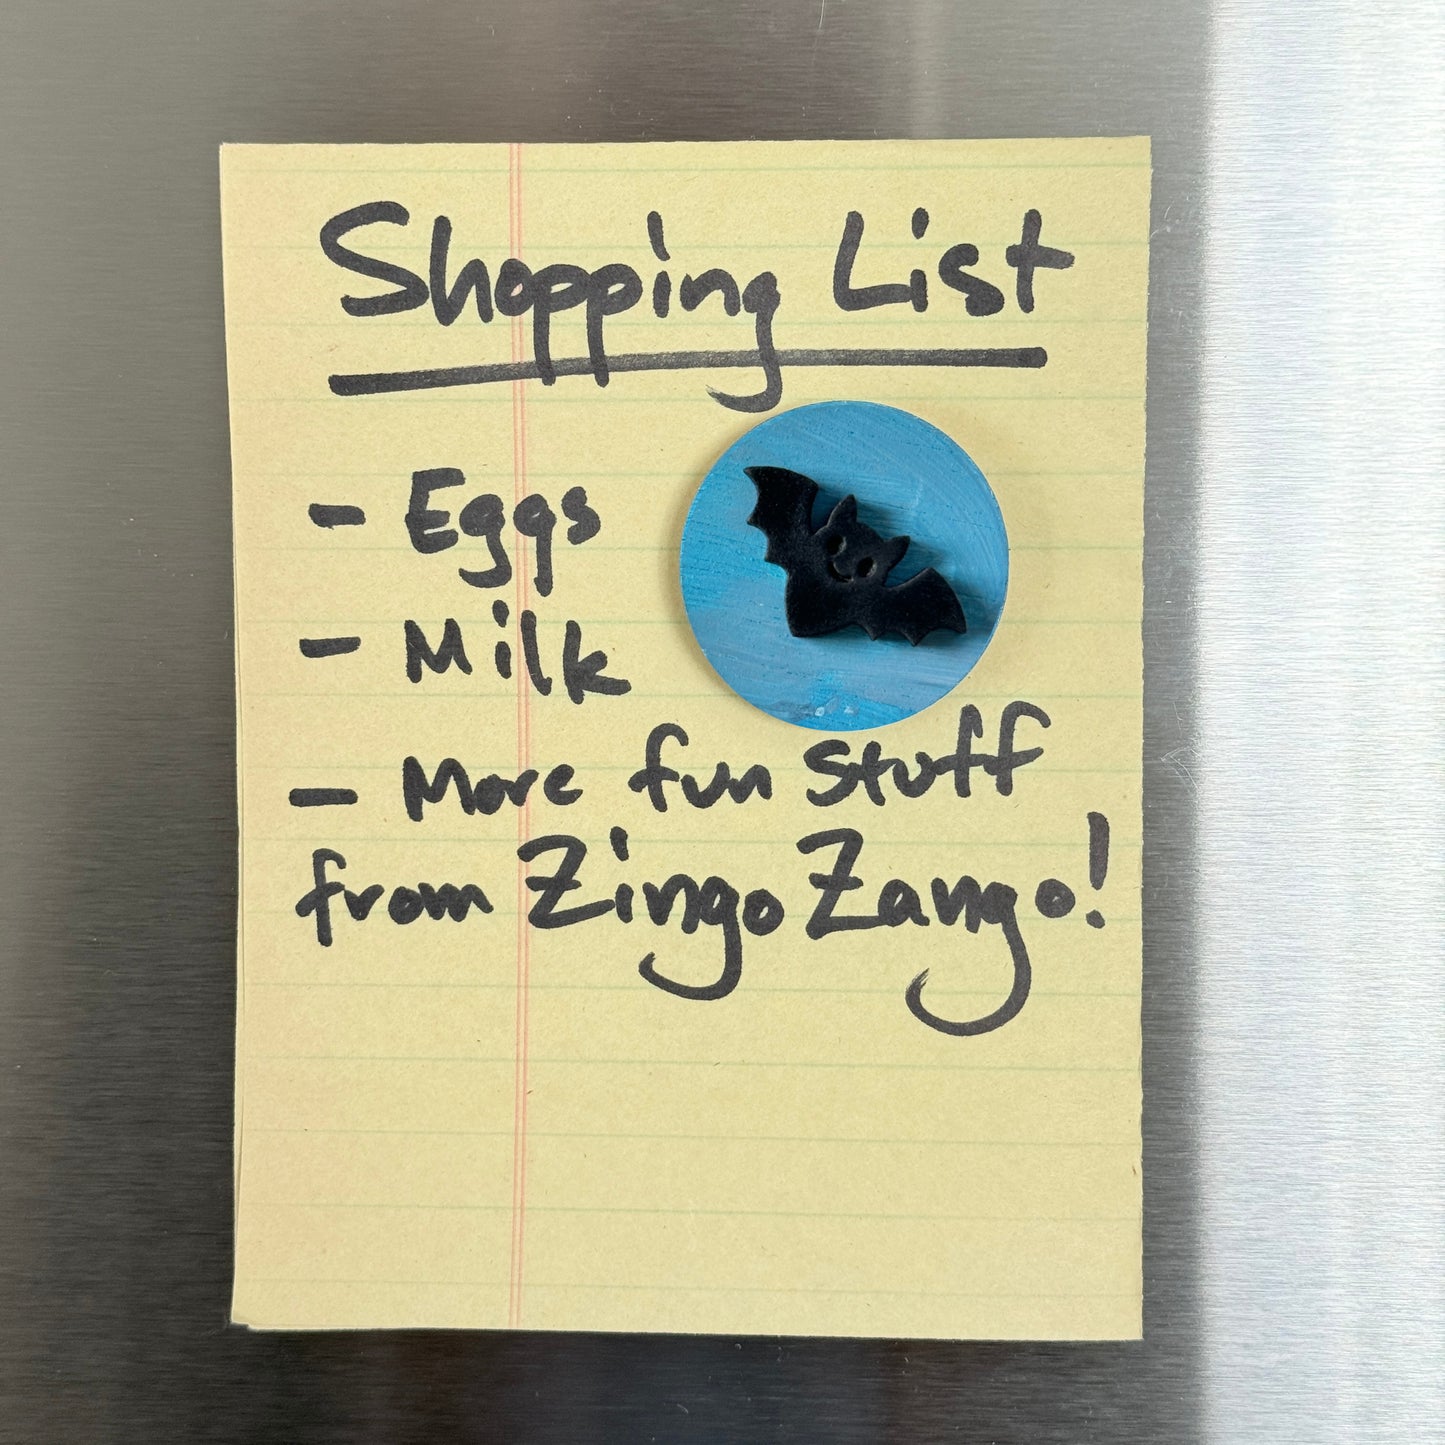 Shopping List
- Eggs
- Milk
- More fun stuff
from Zingo Zango!